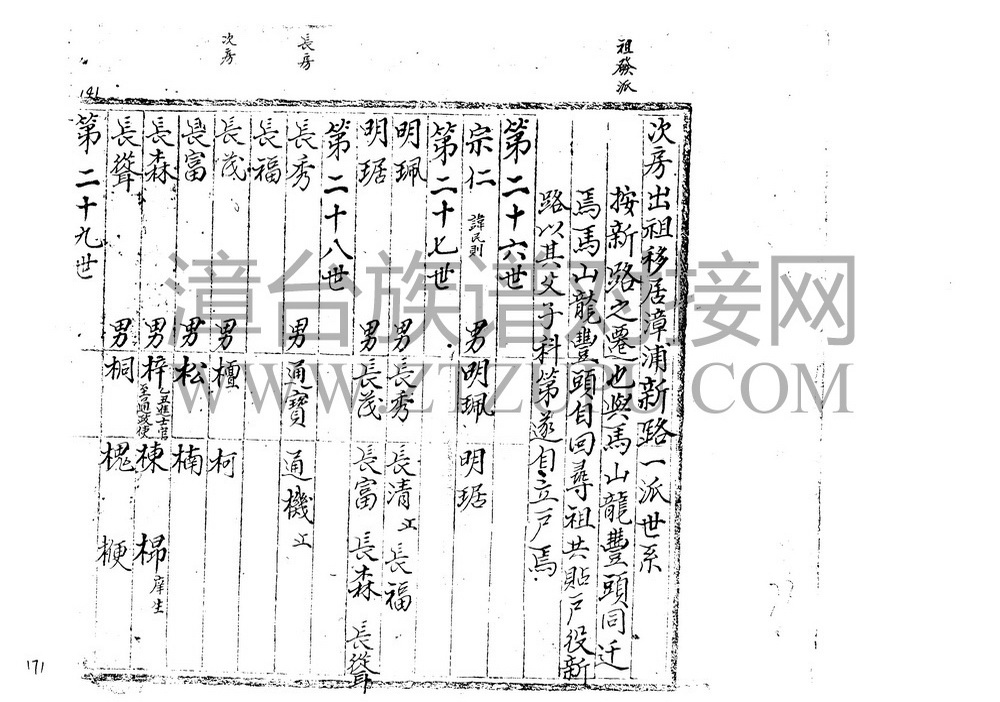 祖發派
長房
次房
141
次房出祖移居漳浦新路一派世系
按新路之遷也與馬山龍豐頭同迁
焉馬山龍豐頭自回尋祖共貼戶役新
路以其父子科第遂自立戶焉
第二十六世
宗仁 諱民則 男 明珮 明琚
第二十七世
明珮 男 長秀 長清 㱏 長福
明琚 男 長茂 長富 長森 長聳
第二十八世
長秀 男 通寶 通機 㱏
長福
長茂 男 檀 柯
長富 男 松 楠
長森 男 梓 乙丑進士官至通政使 棟 梆 庠生
長聳 男 桐 槐 梗
第二十九世
171
漳台族谱对接网
WWW.ZTZUPU.COM